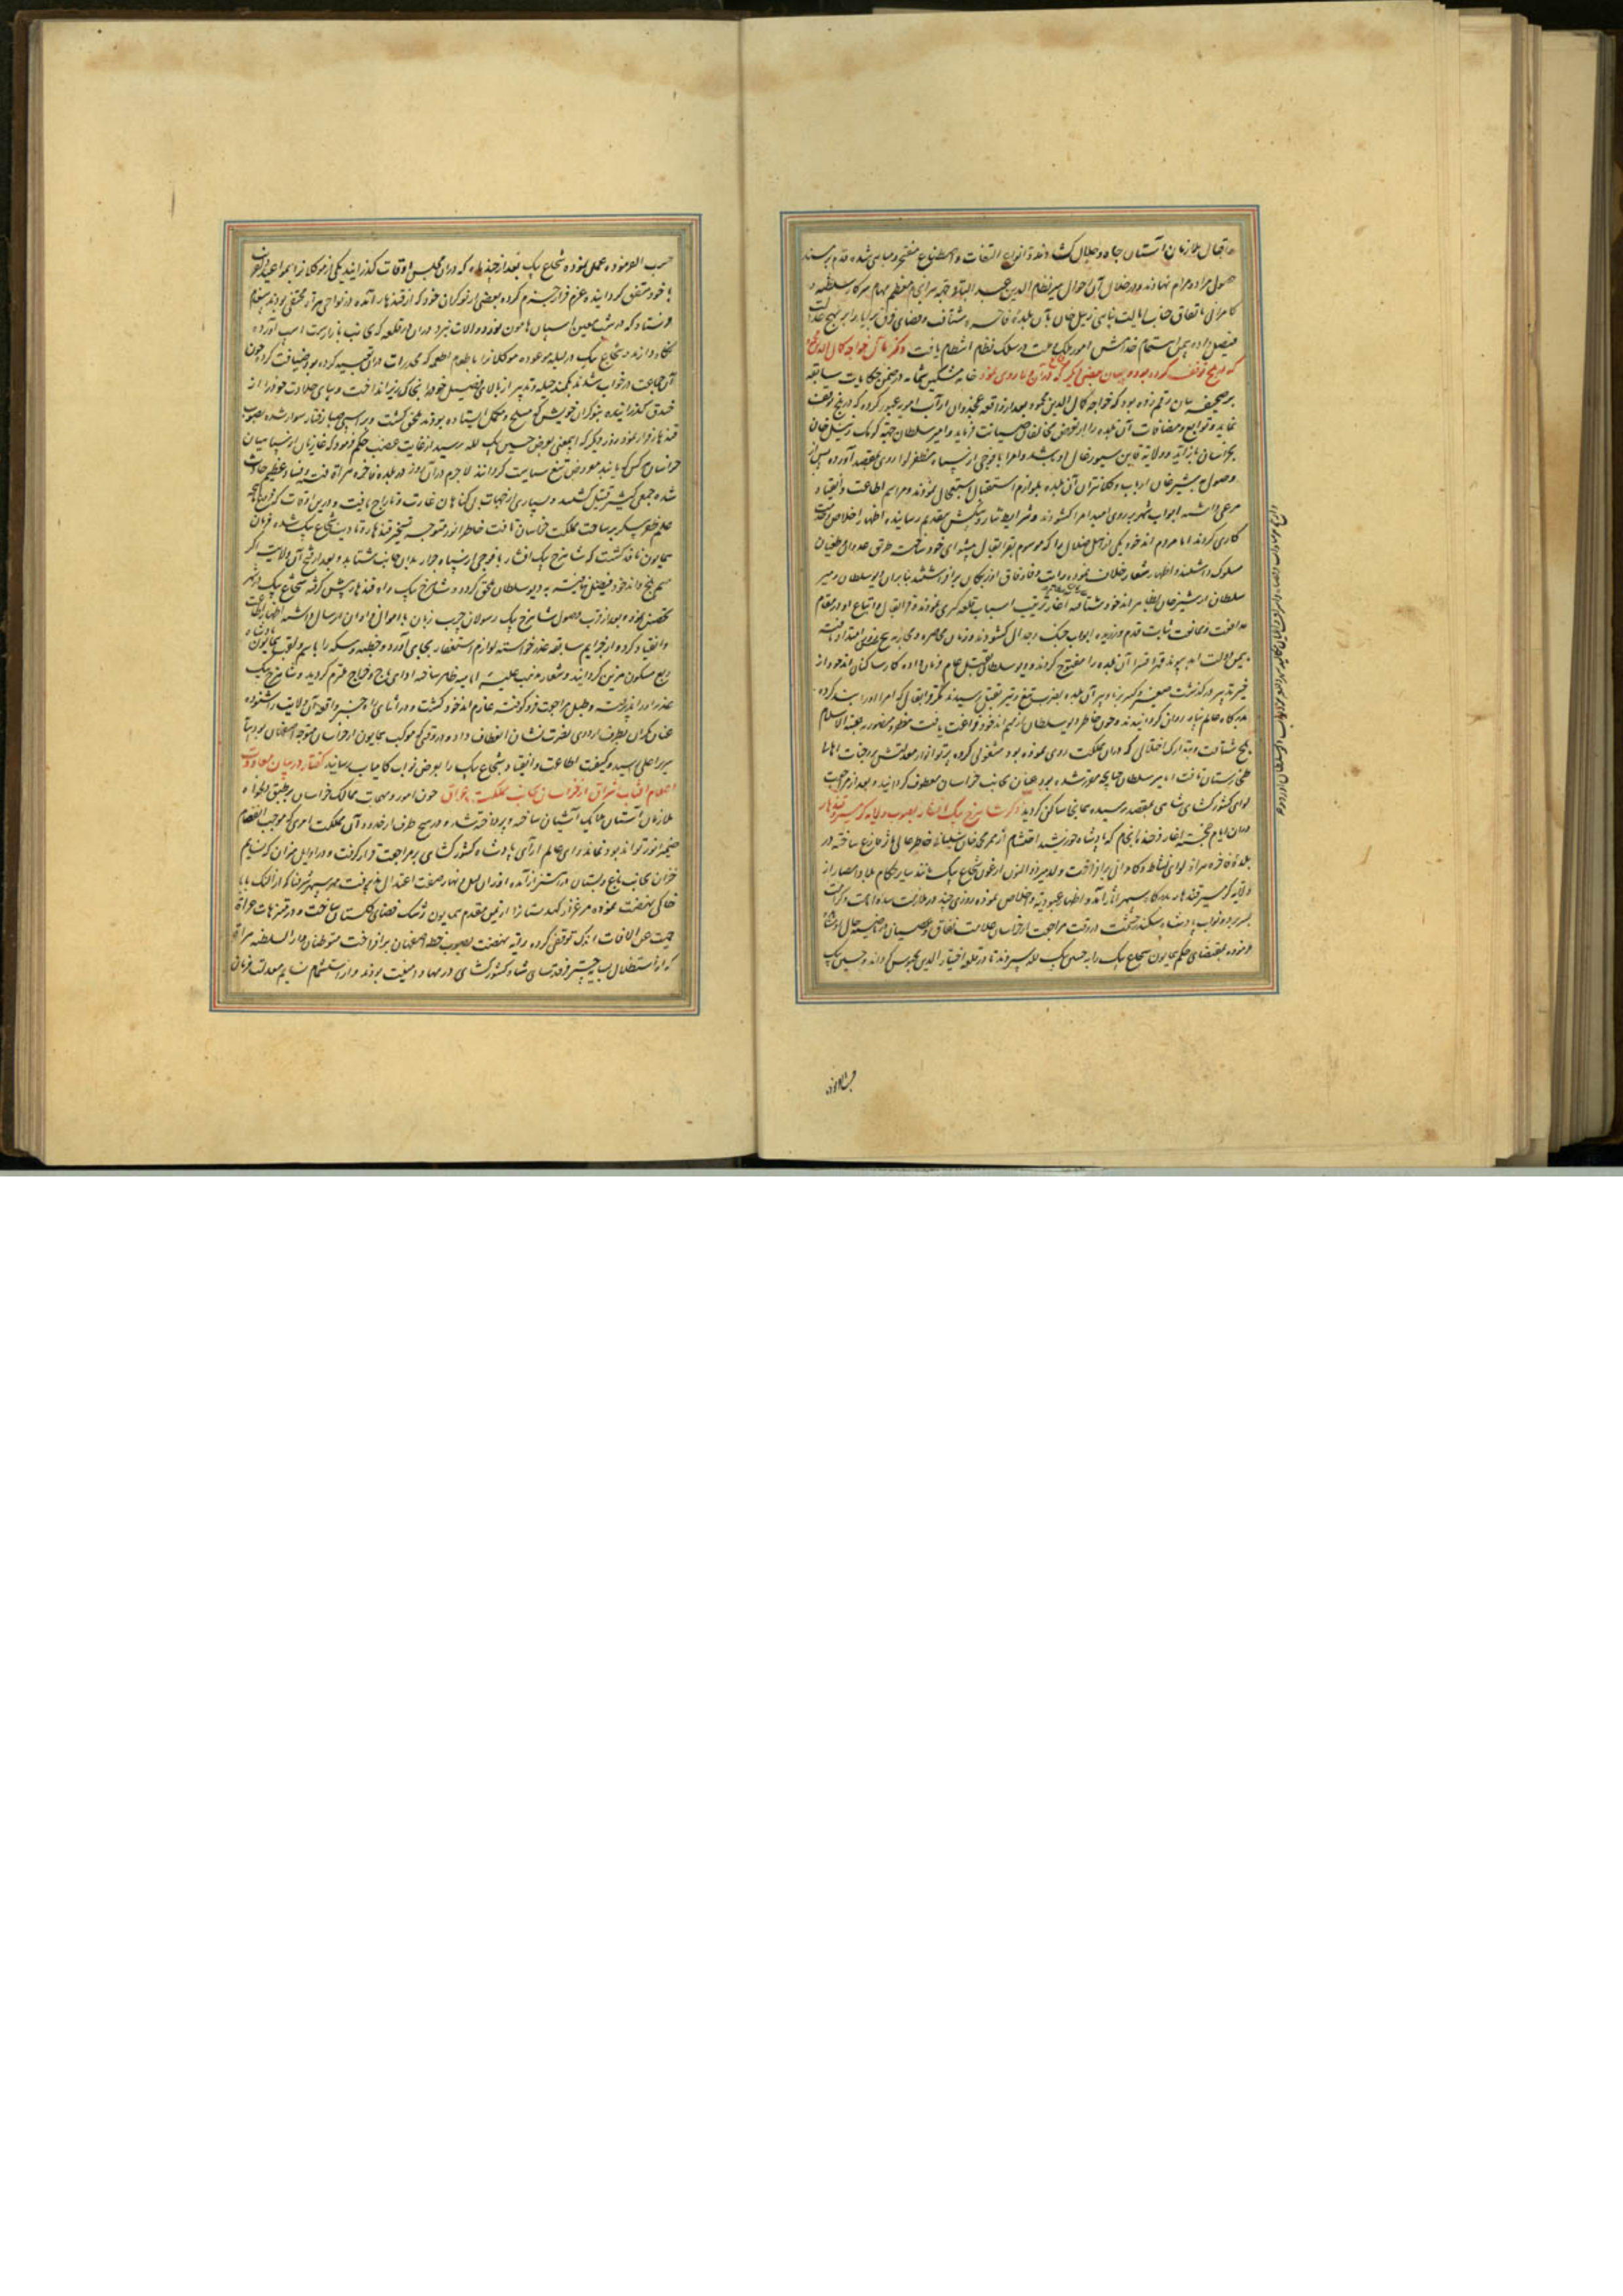 و اقبال ملازمان آستان جاه و جلال کشادند و انواع التفات و اصطناع مفتخر و مباهی شده قدم بر مسند
حصول مراد و مرام نهادند و در خلال آن احوال میر نظام الدین عبد الباقی جهة سرانجام معظم مهام سرکار سلطنه و
کامرانی باتفاق جناب ایالت پناهی زینل خان بآن بلدهٔ فاخره شتافت و قضای فرق برایا را بر نهج عدالت
فیصل داده بیمن اهتمام خدامش امور ملک و ملت در سلک نظام انتظام یافت ذکر مآل خواجه کمال الدین محمود
که در بلخ توقف کرده بود و بیان بعضی دیگر که در آن دیار روی نمود خامهٔ مشکین شمامه در ضمن حکایات سابقه
بر صحیفه بیان رقم زده بود که خواجه کمال الدین محمود بعد از واقعه غجدوان از آب امویه عبور کرده که در بلخ توقف
نماید و توابع و مضافات آن بلده را از تعرض مخالفان صیانت فرماید و امیر سلطان جهة کومک زینل خان
بخراسان باز آید و ولایة قاین سیورغال او باشد و امرا با فوجی از سپاه مظفر لوا روی بمقصد آورده پس از
وصول بشبرغان ارباب و کلانتران آن بلده بلوازم استقبال استعجال نمودند و مراسم اطاعت و انقیاد
مرعی داشته ابواب شهر بر روی امید امرا کشودند و شرایط نثار و پیشکش بتقدیم رسانیده اظهار اخلاص و خدمت
کاری کردند اما مردم اندخود یکی از اهل ضلال را که موسوم بقرا بقال پیشوای خود ساخت طریق عدوان طغیان
مسلوک داشتند و اظهار شعار خلاف نموده رایات وفاق اوزبکان برافراشتند بنابران دیو سلطان و میر
سلطان از شبرغان بر سر اندخود شتافته آغاز ترتیب اسباب قلعه گیری نمودند و قرا بقال و اتباع او در مقام
مدافعت و ممانعت ثابت قدم ورزیده ابواب جنک و جدال کشودند و زمان محاصره و محاربه
بیمن دولت ابد پیوند قهرا قسرا آن بلده را مفتوح کردند و دیو سلطان بقتل عام فرمان داده کار ساکنان اندخود از
خیر تدبیر درگذشت صغیر و کبیر برنا و پیر آن بلده بضرب تیغ و تیر بقتل رسیدند مگر قرا بقال که امرا او را بند کرده
بدرگاه عالم پناه روان گردانیدند و چون خاطر دیو سلطان از مهم اندخود فراغت یافت مظفر و منصور بقبة الاسلام
بلخ شتافت و بتدارک اختلالی که در آن مملکت روی نموده بود مشغولی کرده پرتو انوار معدلتش بر وجنات اهالی
طخارستان تافت امیر سلطان چنانچه مقرر شده بود عنان بجانب خراسان معطوف گردانیده و بعد از مراجعت
لوای کشورکشای شاهی بمقصد رسیده بجانجا ساکن گردید ذکر شاهرخ بیک افشار بصوب ولایه گرمسیر و قندهار
در آن ایام خجسته آغاز فرخنده انجام که پادشاه خورشید احتشام از ممر محمد خان شیبانی خاطر عالی مآثر فارغ ساخته در
بلدهٔ فاخره هراة لوای نشاط و کامرانی برافراخت ولد میر ذوالنون ارغون شجاع بیک مانند سایر حکام بلاد و امصار از
ولایه گرمسیر قندهار بدرگاه سپهر آثار آمده و اظهار عبودیته و اخلاص نموده روزی چند در ملازمت سدهٔ امامت و کرامت
بسر برد و نواب پادشاه سکندر حشمت در وقت مراجعت از خراسان علامت نفاق و عصیان در ناصیه حال او مشاهده
فرموده بمقتضای حکم همایون شجاع بیک را به حسین بیک لله سپردند تا در قلعه اختیار الدین محبوس گرداند و حسین بیک
حسب الفرموده
حسب الفرموده عمل نموده شجاع بیک بعد از چند ماه که در آن مجلس اوقات گذرانید یکی از موکلانرا بمواعید
با خود متفق گردانیده عزم فرار جزم کرده بعضی از نوکران خود که از قندهار آمده در نواحی هراة مختفی بودند پیغام
فرستاد که در شب معین اسپان هامون نورد و آلات نبرد در آن طرف قلعه که جانب بازارست اسب آورده
نگاه دارند و شجاع بیک در لیله موعوده موکلانرا باطعام اطعمه که مخدرات در آن تعبیه کرده بود ضیافت کرد چون
آن جماعت در خواب شدند بکمند حیله و تدبیر از بالای فصیل خود را بخاکریز انداخت و بپای جلادت خود را از
خندق گذرانیده بنوکران خویش که مسلح و مکمل ایستاده بودند ملحق گشت و بر اسپی صبا رفتار سوار شده بصوب
قندهار فرار نمود روز دیگر که این معنی بعرض حسین بیک لله رسید از غایت غضب حکم فرمود که غازیان از سپاهیان
خراسان هر کس را یابند معروض تیغ سیاست گردانند لاجرم در آن روز در بلدهٔ فاخره هراة فتنه و فساد عظیم حادث
شده جمعی کثیر قتیل گشتند و بسیاری از جهات بی گناهان غارت و تاراج یافت و درین اوقات که فروغ ماهچه
علم ظفر پیکر بر ساحت مملکت خراسان تافت خاطر انور متوجه تسخیر قندهار و تادیب شجاع بیک شده فرمان
همایون نافذ گشت که شاهرخ بیک افشار با فوجی از سپاه جرار بدان جانب شتابد و بعد از فتح آن ولایت اگر
مهم بلخ و اندخود فیصل نیافته به دیو سلطان ملحق گردد و شاهرخ بیک راه قندهار پیش گرفته شجاع بیک در شهر
تحصن نموده و بعد از قرب وصول شاهرخ بیک رسولان چرب زبان با اموال فراوان ارسال داشته اظهار اطاعت
و انقیاد کرد و از جرایم سابقه عذر خواسته لوازم استغفار بجای آورد و خطبه و سکه را باسم و لقب همایون پادشاه
ربع مسکون مزین گردانید و شعار مذهب علیهٔ امامیه ظاهر ساخته ادای باج و خراج ملتزم گردید و شاهرخ بیک
عذر او را پذیرفته و طبل مراجعت فرو کوفته عازم اندخود گشت و در اثنای راه خبر واقعه آن ولایت را شنوده
عنان یکران بطرف اردوی نصرت نشان انعطاف داد و در وقتی که موکب همایون از خراسان متوجه اصفهان بود بپایه
سریر اعلی رسید و کیفیت اطاعت و انقیاد شجاع بیک را بعرض نواب کامیاب رسانید گفتار در بیان معاودت
اعلام آفتاب اشراق از خراسان بجانب مملکت عراق چون امور و مهمات ممالک خراسان بر طبق دلخواه
ملازمان آستان ملایک آشیان ساخته و پرداخته شد و در هیچ طرف از حدود آن مملکت امری که موجب انقسام
ضمیر انور تواند بود نماند و رای عالم آرای پادشاه کشورکشای بر مراجعت قرار گرفت و در اوایل میزان که نسیم
خزان بجانب باغ و بستان در اهتزاز آمده اوزان لیل و نهار صفت اعتدال پذیرفت مهر سپهر شرفنا که از النگ بابا
خاکی نهضت نموده مرغزار کهدستانرا از فیض مقدم همایون رشک فضای گلستان ساخت و در متنزهات هراة
حمیت عن الآفات اندک توقفی کرده رایة نهضت بصوب خطه اصفهان برافراخت متوطنان دار السلطنه هراة
که از استظلال سایه چتر فرقدسای شاه کشورکشای در مهاد امنیت بودند و از استشمام نسایم معدلت فرمان